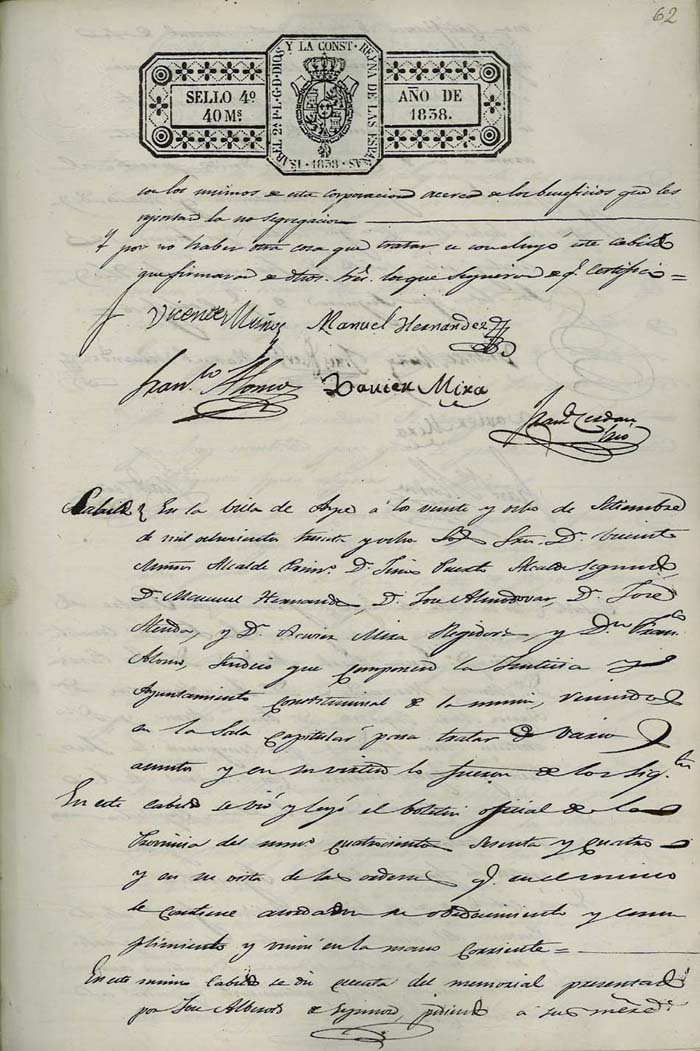 62
ISABEL 2ª P. L. G. D. DIOS Y LA CONST. REYNA DE LAS ESPAÑAS
· 1838 ·
SELLO 4º
40 Mˢ
AÑO DE
1838.
con los mismos de esta corporacion acerca de los beneficios que les
reportará la no segregacion
Y por no haber otra cosa que tratar se concluyó este cabildo
que firmaron de dhos. Sres. los que supieron de q. certifico =
Vicente Muñoz Manuel Hernandez
Franco Alonso Xavier Mira
Cabildo En la villa de Aspe á los veinte y ocho de Setiembre
de mil ochocientos treinta y ocho Los Sres. D. Vicente
Muñoz Alcalde Primo. D. Puerto Alcalde segundo
D. Manuel Hernandez, D. José Almodovar, D. José
y D. Xavier Mira Regidores y Dn. Franco.
Alonso, Sindico que componen la Justicia y
Ayuntamiento constitucional de la misma, reunidos
en la Sala capitular para tratar de varios
asuntos y en su virtud lo fueron de los sigtes
En este cabildo se vió y leyó el boletin oficial de la
Provincia del numo. cuatrocientos sesenta y cuatro
y en su vista de las ordenes q. en el mismo
se contiene acordaron su obedecimiento y cum
plimiento y en la mano corriente =
En este mismo Cabildo se dió cuenta del memorial presentado
por José Alberola de Segimundo, pidiendo á sus mercedes